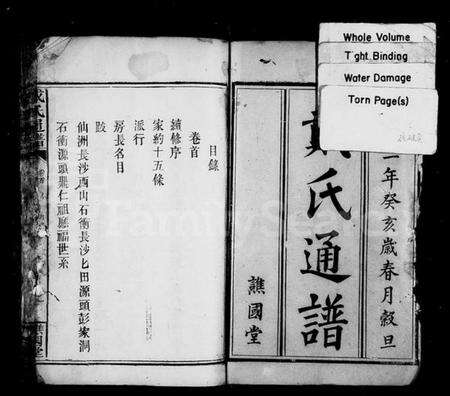 Whole Volume
Tight Binding
Water Damage
Torn Page(s)
一年癸亥歲春月穀旦
氏通譜
譙國堂
目錄
卷首
續修序
家約十五條
派行
房長名目
跋
仙洲長沙酉山石衝長沙匕田源頭彭家洞
石衝源頭
氏通譜
FamilySearch